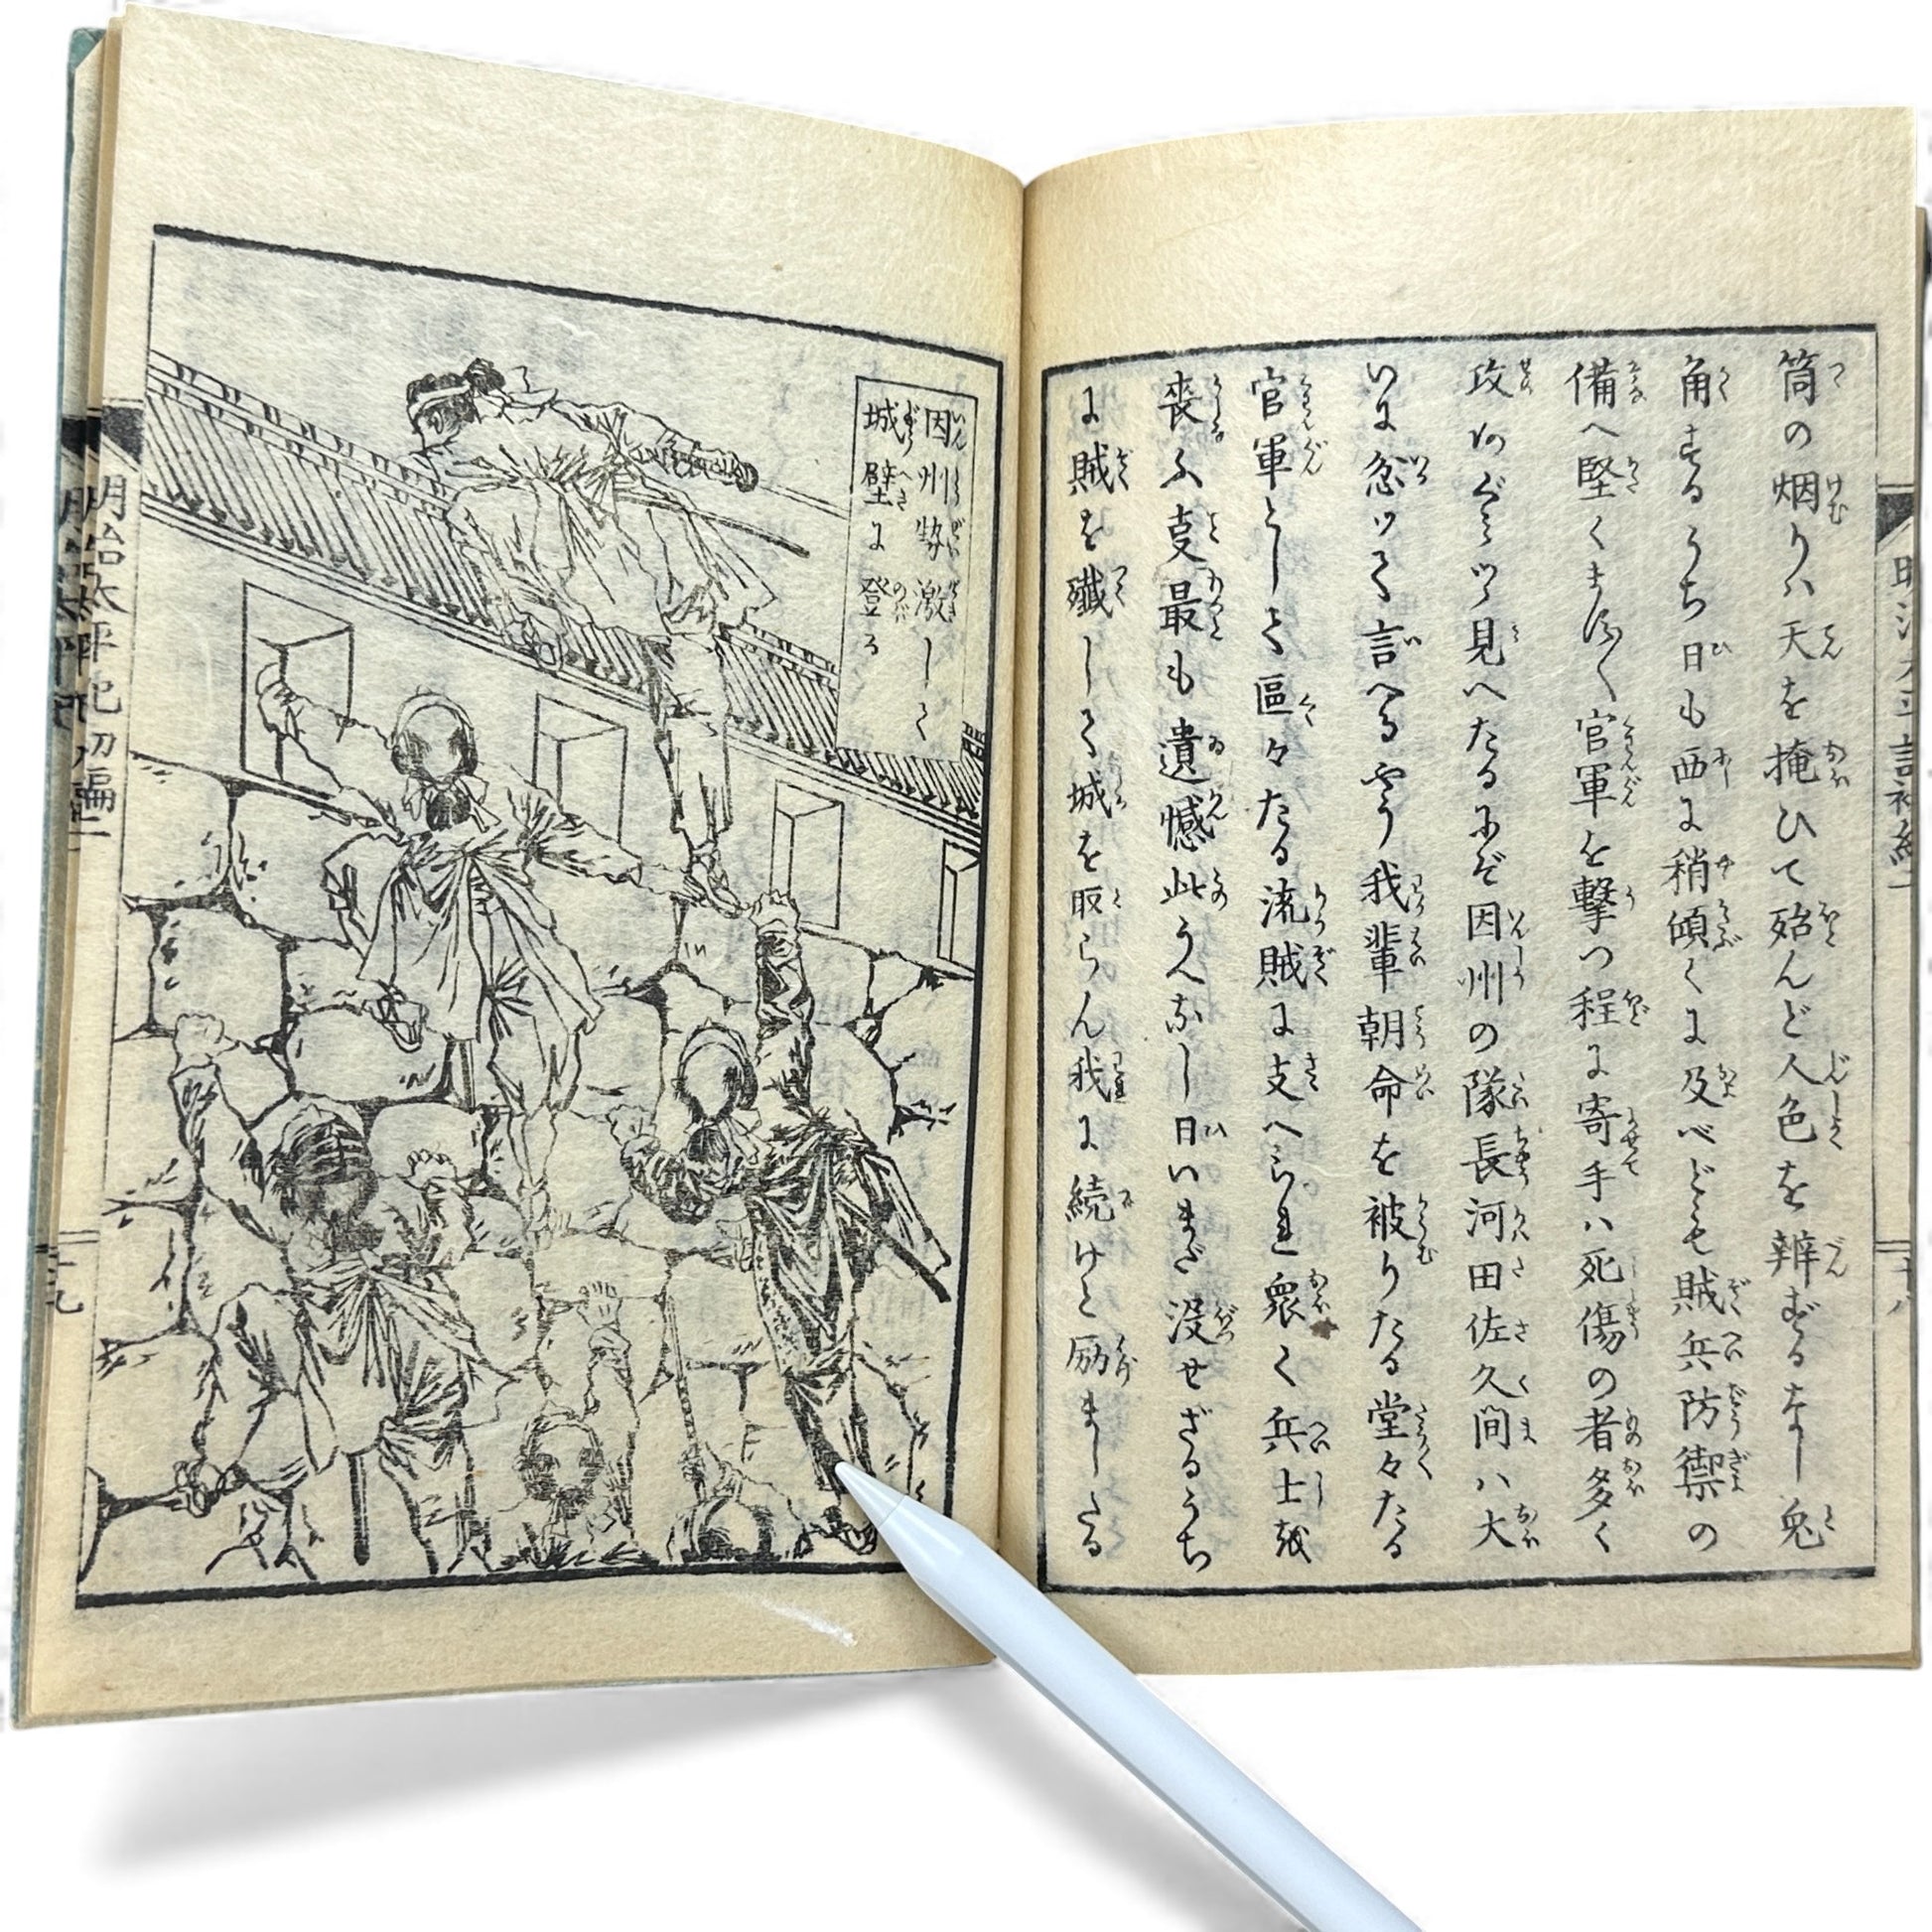 筒の烟りハ天を掩ひて殆んど人色を辨ずるなし兎
角するうち日も西に稍傾くに及べども賊兵防禦の
備へ堅くして官軍を撃つ程に寄手ハ死傷の者多く
攻めぐミて見へたるにぞ因州の隊長河田佐久間ハ大
いに忿ッて言へるやう我輩朝命を被りたる堂々たる
官軍として區々たる流賊に支へられ衆く兵士を
喪ふ支最も遺憾此うへなし日いまだ没せざるうち
に賊を殲して城を取らん我に続けと励ましたる
因州勢激して
城壁に登る
明治太平記初編一
十九